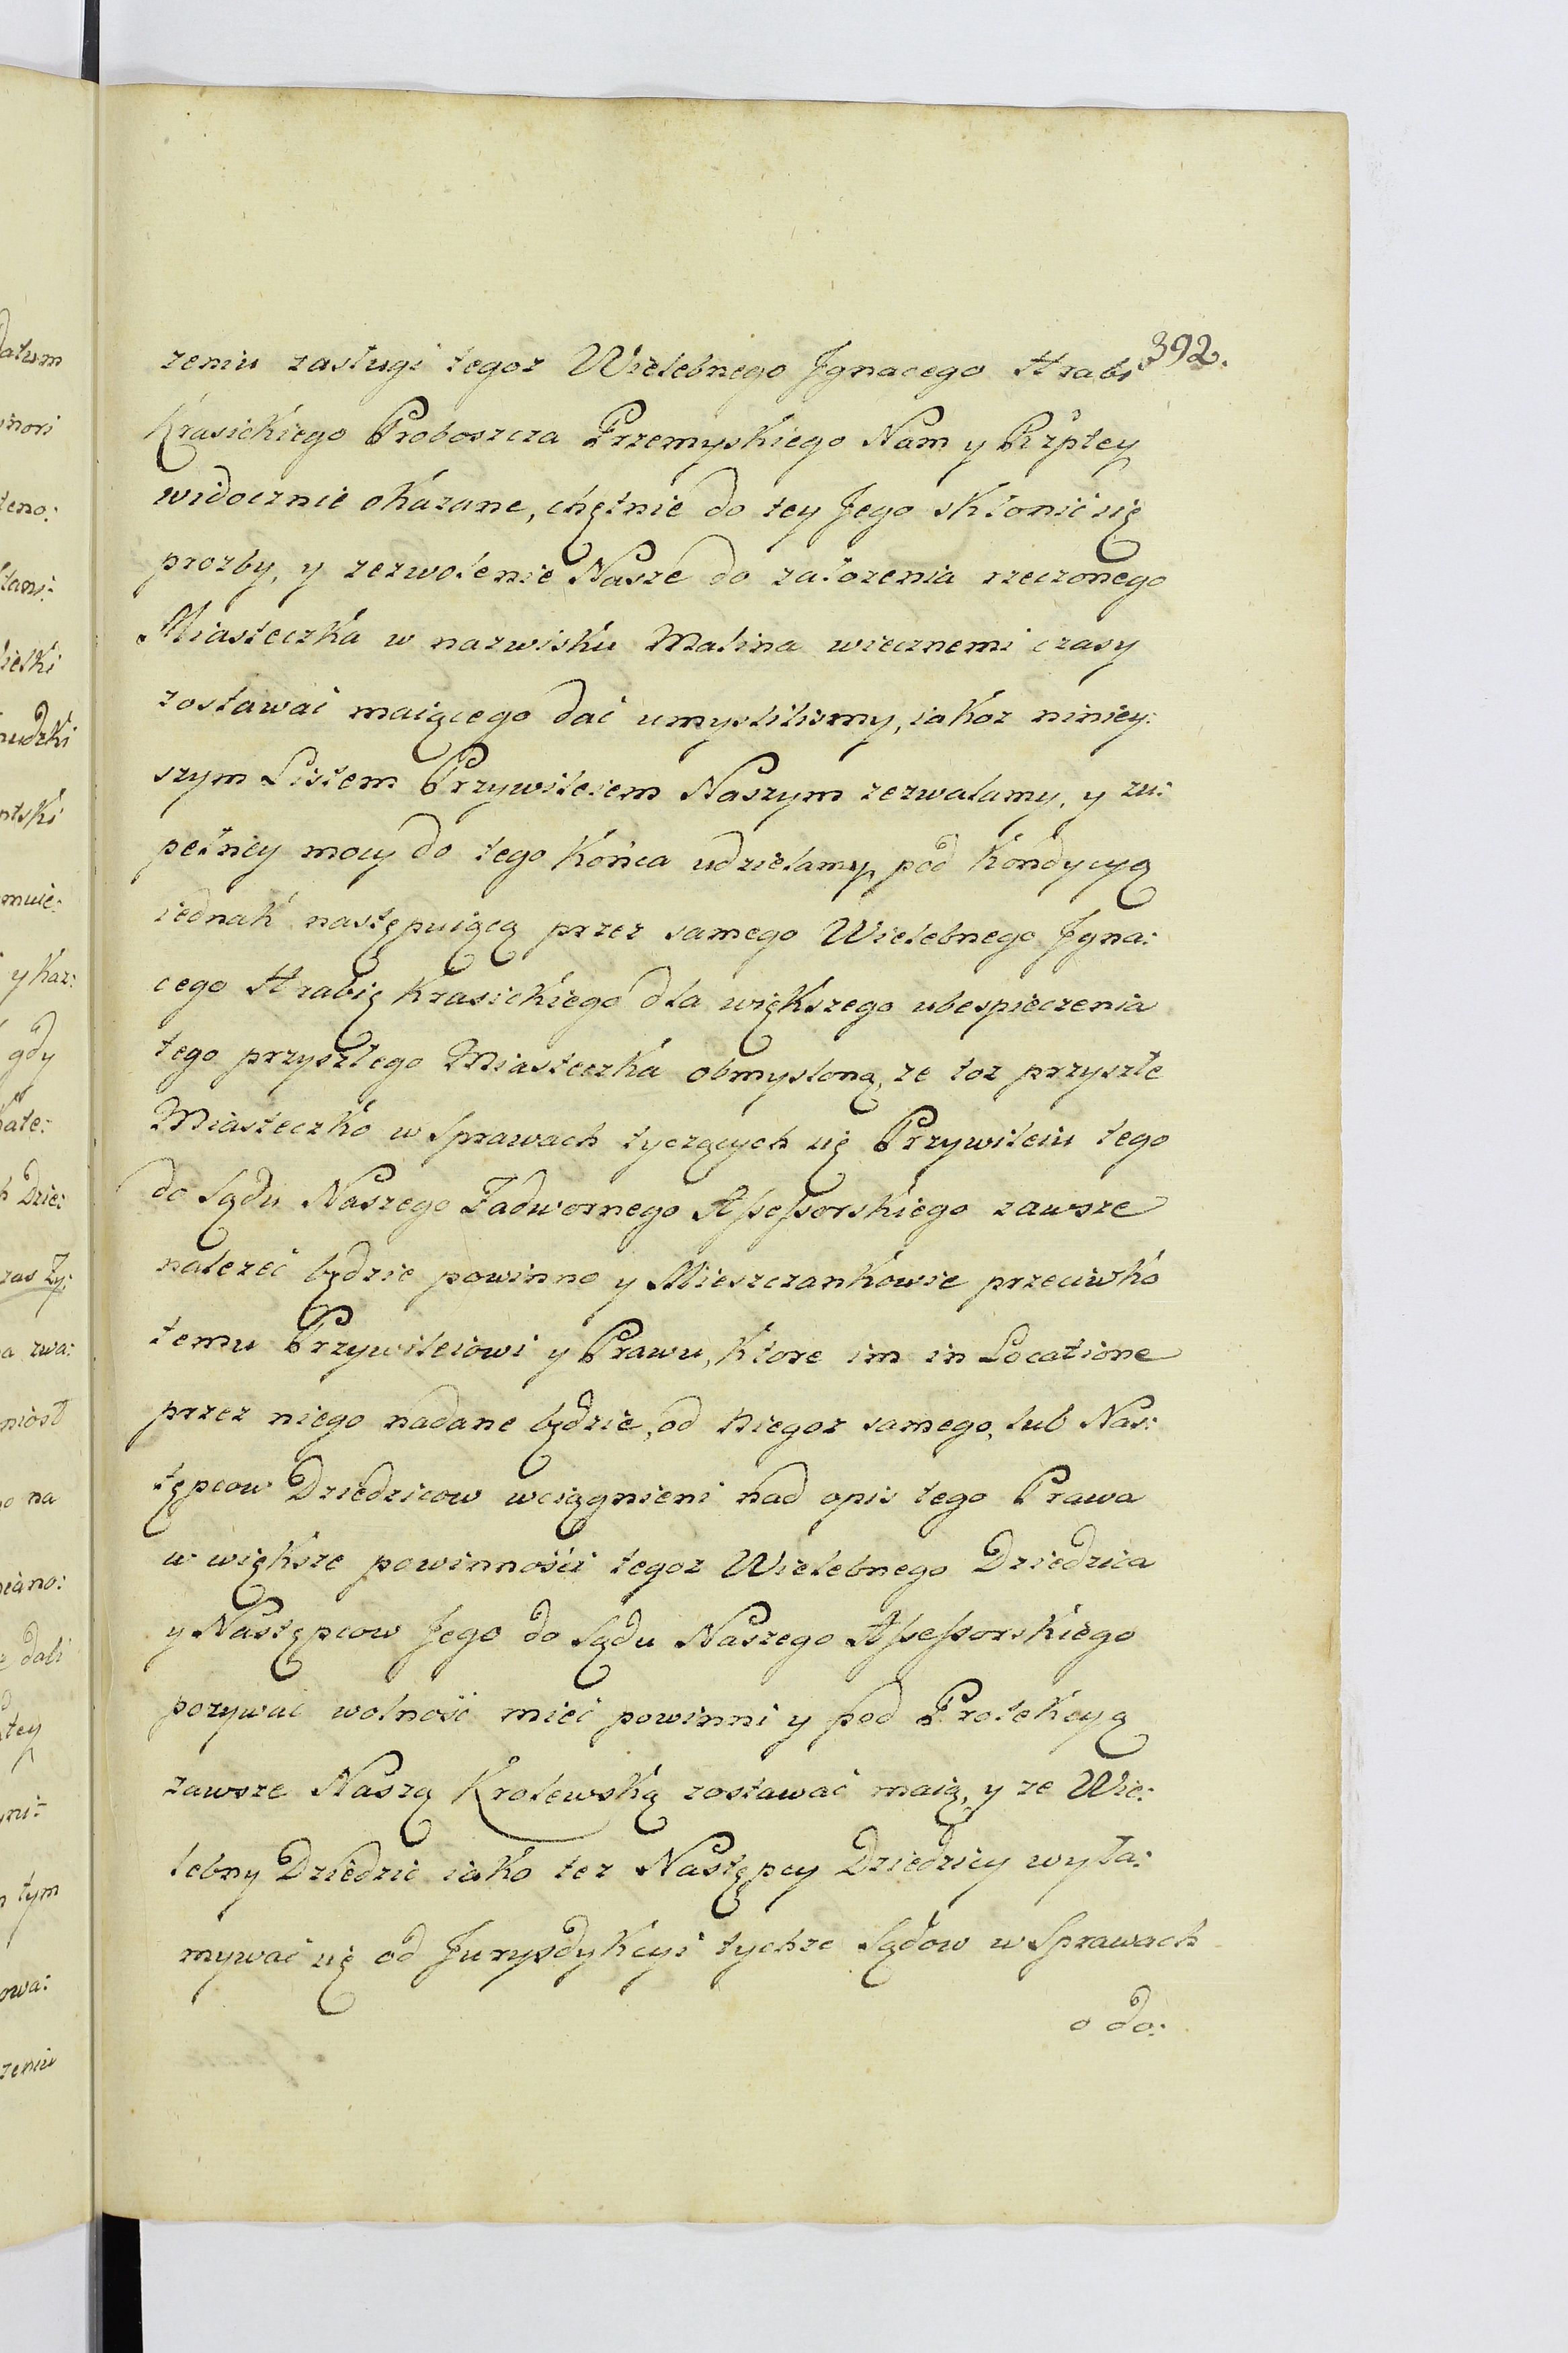 392.
zeniu zasługi tegoz Wielebnego Jgnacego Hrabi
Krasickiego Proboszcza Przemyskiego Nam y Rzptey
widocznie okázane, chętnie do tey Jego skłonić się
prozby, y zezwolenie Nasze do załozenia rzeczonego
Miasteczká w nazwisku Malina wiecznemi czasy
zostawać maiącego dać umyslilismy, iakoz niniey:
szym Listem Przywileiem Naszym zezwalamy, y zu:
pełney mocy do tego Końca udzielamy, pod Kondycyą
iednak następuiącą przez samego Wielebnego Jgna:
cego Hrabię Krasickiego dla większego ubespieczenia
tego przyszłego Miasteczká obmysloną, ze toz przyszłe
Miasteczko w Sprawach tyczących się Przywileiu tego
do Sądu Naszego Zadwornego Assessorskiego zawsze
nalezeć będzie powinno y Mieszczankowie przeciwko
temu Przywileiowi y Prawu, Ktore im in Locatione
przez niego nadane będzie, od niegoz samego, lub Nas:
tępcow Dziedzicow wciągnieni nad opis tego Prawa
w większe powinności tegoz Wielebnego Dziedzica
y Następcow Jego do Sądu Naszego Assessorskiego
pozywać wolność mieć powinni y pod Protekcyą
zawsze Naszą Krolewską zostawać maią, y ze Wie:
lebny Dziedzic iako tez Następcy Dziedzicy wyła:
mywać się od Jurysdykcyi tychze Sądow w Sprawach
o do:
datum
gdy
h Dzie:
zas Zy:
a zwa:
niosł
o na
dali
tym
owa:
zeniu